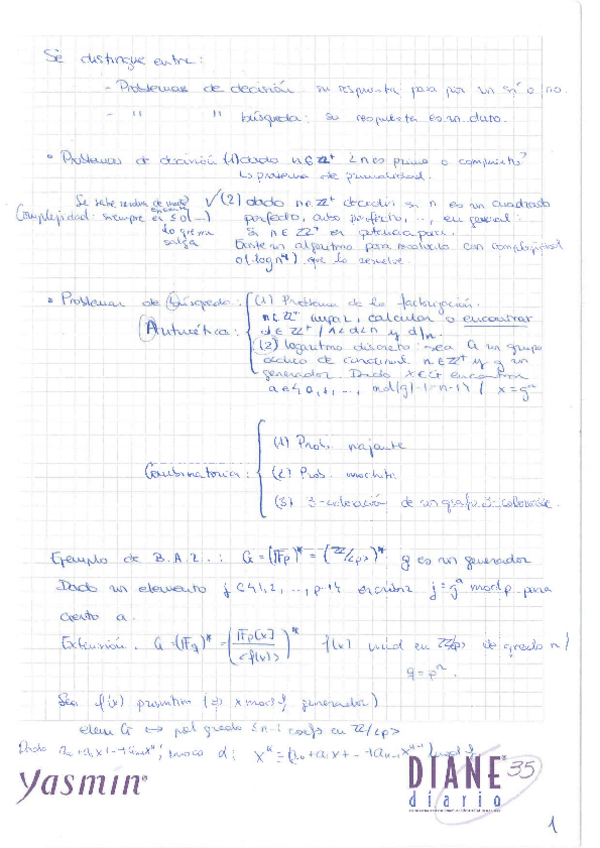 Se distingue entre:
- Problemas de decisión su respuesta pasa por un sí o no.
- " " búsqueda: su respuesta es un dato.
• Problemas de decisión (1) dado n∈ℤ⁺ ¿n es primo o compuesto?
↳ problema de primalidad.
Se sabe resolver de modo
✓(2) dado n∈ℤ⁺ decidir si n es un cuadrado
Complejidad: siempre es ≤ O(—)
perfecto, cubo perfecto, ..., en general:
lo que
salga
si n∈ℤ⁺ es potencia pura.
Existe un algoritmo para resolverlo con complejidad
O(log n⁴) que lo resuelve.
• Problemas de búsqueda: (1) Problema de la factorización.
Aritmética: n∈ℤ⁺ impar, calcular o encontrar
d∈ℤ⁺ / 1<d<n y d/n.
(2) logaritmo discreto: sea G un grupo
cíclico de cardinal n∈ℤ⁺ y g un
generador. Dado x∈G encontrar
a∈{0,1,..., ord(g)-1=n-1} / x=gᵃ
(1) Prob. viajante
Combinatoria: (2) Prob. mochila
(3) 3-coloración de un grafo 3-coloreable.
Ejemplo de B.A.2.: G=(𝔽p)*=(ℤ/<p>)* g es un generador
Dado un elemento j∈{1,2,...,p-1} escribir j=gᵃ mod p para
cierto a.
Extensión. G=(𝔽q)*=(𝔽p[x]/<f(x)>)* f(x) irred en ℤ/<p> de grado n /
q=pⁿ.
Sea f(x) primitivo (⇒ x mod f generador)
elem G ↔ pol grado ≤n-1 coefs en ℤ/<p>
Dado a₀+a₁x+-+aₙ₋₁xⁿ⁻¹, busco α: x^α=(a₀+a₁x+-+aₙ₋₁xⁿ⁻¹) mod f
Yasmin
DIANE 35
diario
1